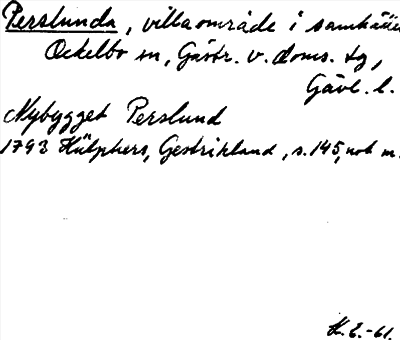 Perslunda, villaområde i samhället
Ockelbo sn, Gästr. v. doms. tg,
Gävl. l.
Nybygget Perslund
1793 Hülphers, Gestrikland, s. 145, not m.
H. E. -61.